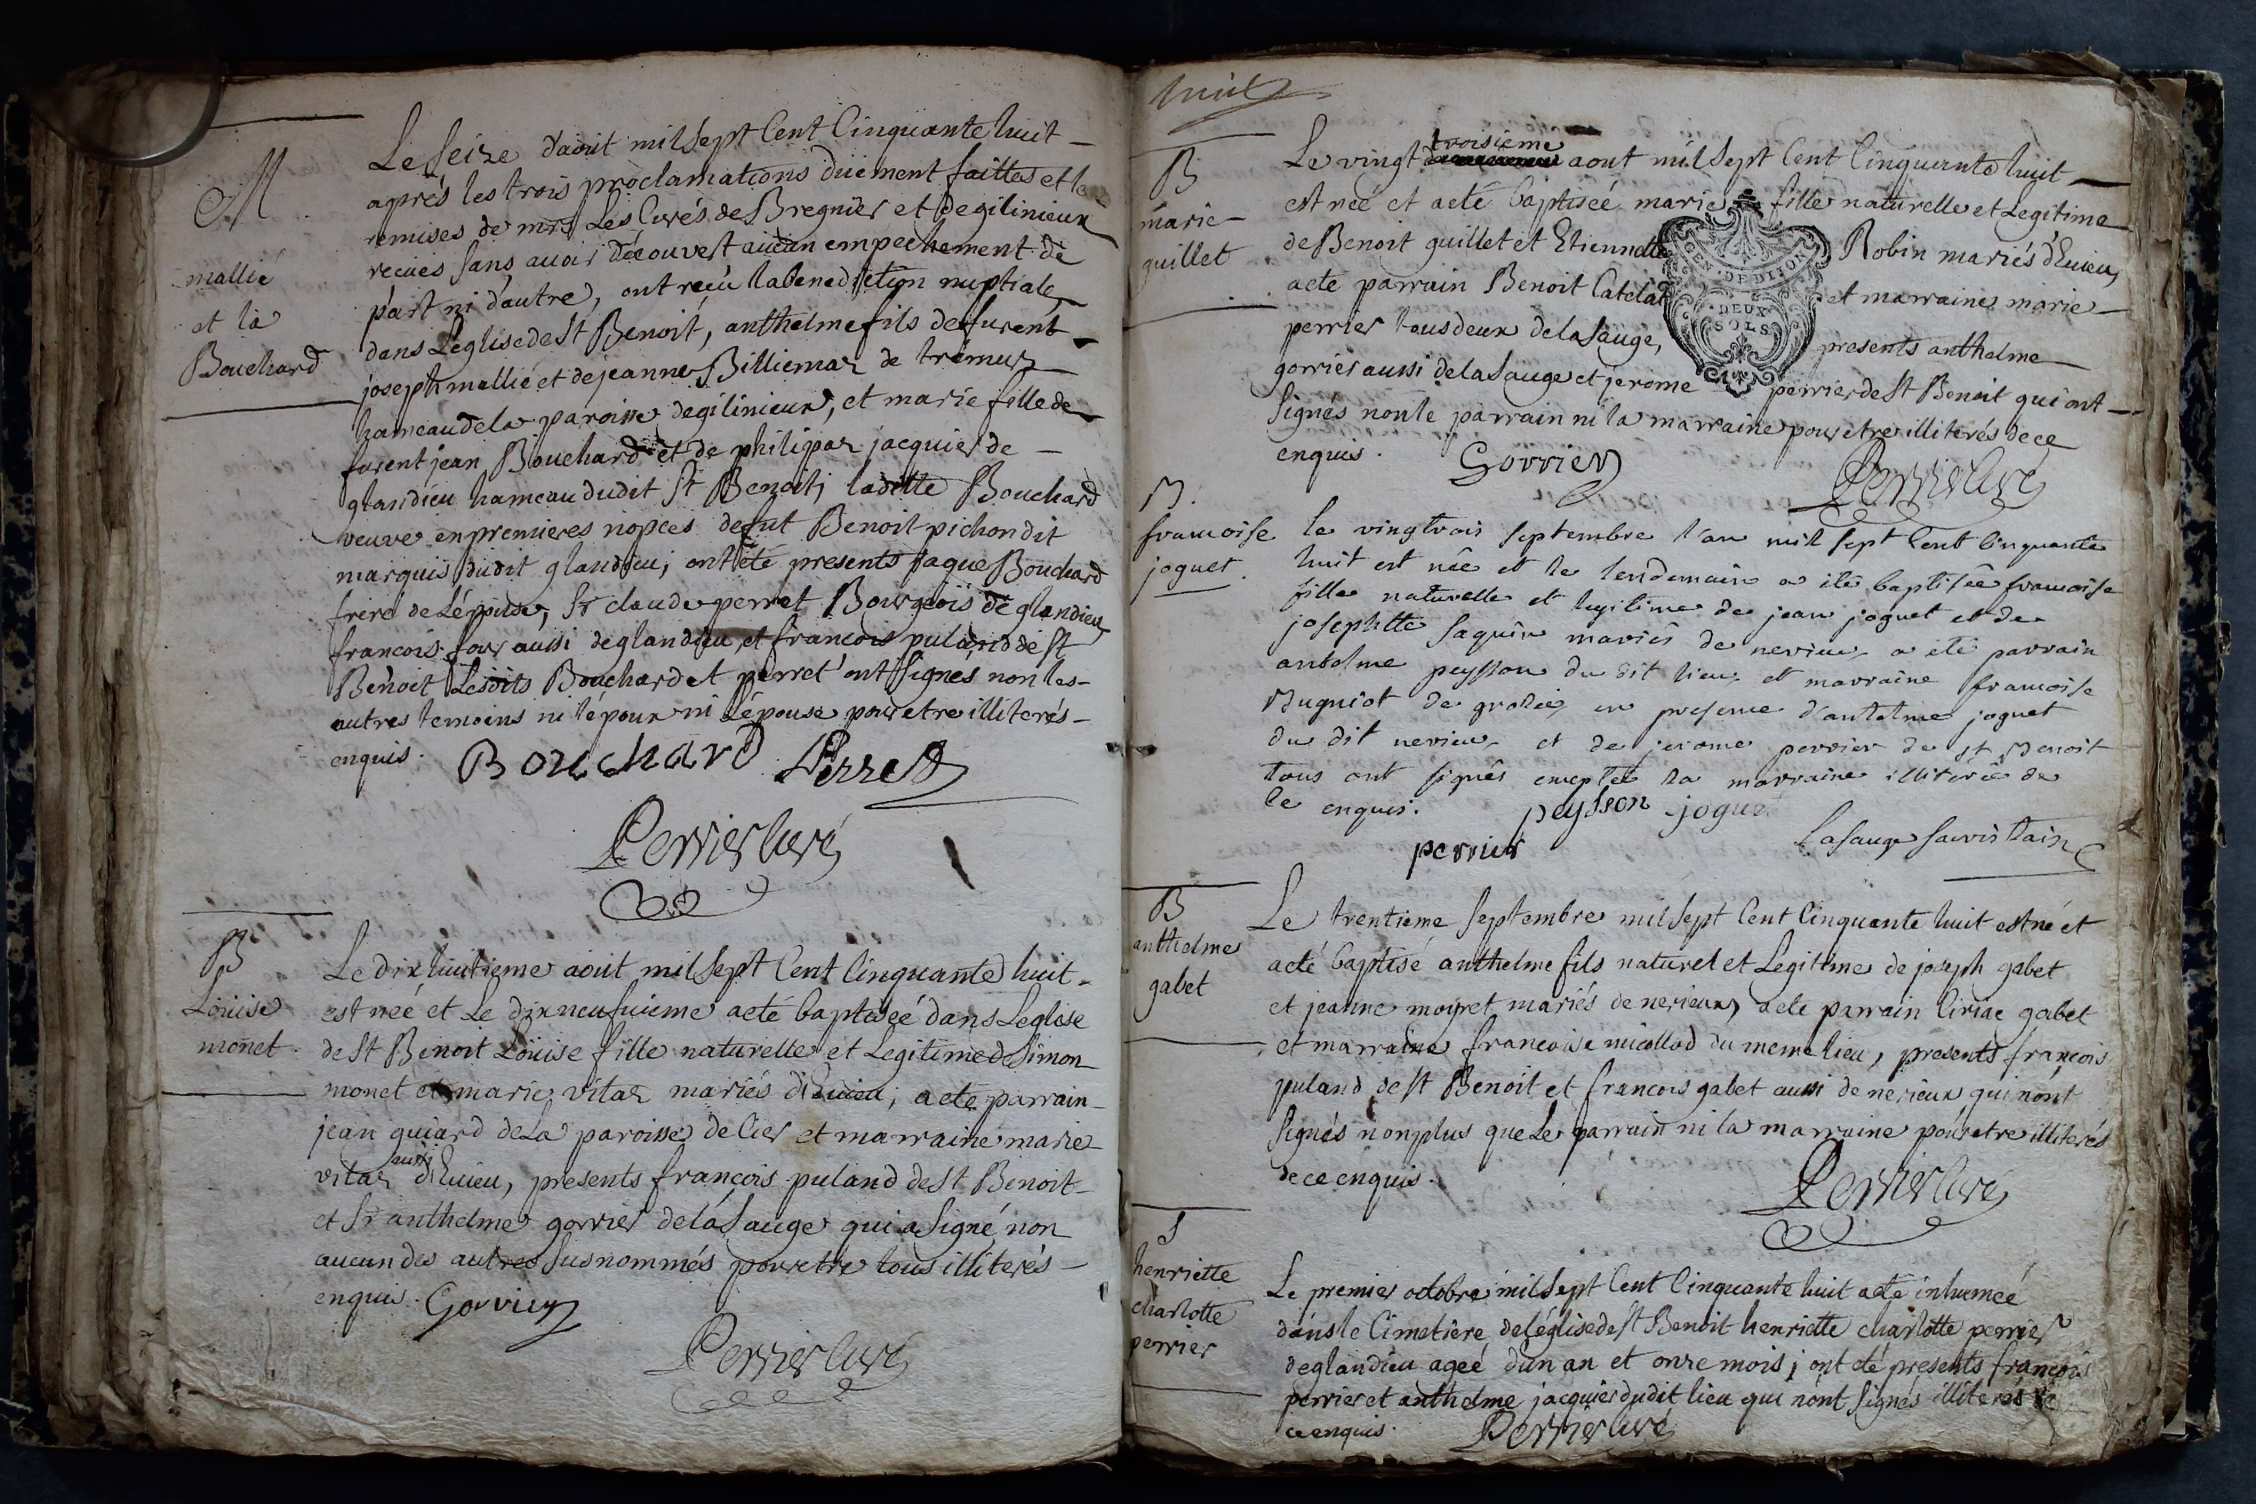 M
mallié
et la
Bouchard
Le seize daout mil sept Cent Cinquante huit –
aprés les trois proclamations düement faittes et la
remises de mrs Les Curés de Bregnier et de gilinieux
recües sans avoir découvert aucun empechement de
part ni dautre, ont reçu la benediction nuptiale,
dans Leglise de St Benoit, anthelme fils deffurent –
joseph mallié et de jeanne Billiemaz de trémurs
hameau de la paroisse de gilinieux, et marie fille de
furent jean Bouchard et de philipaz jacquier de –
glandieu hameau dudit St Benoit, laditte Bouchard
veuve en premieres nopces de fut Benoit pichon dit
marquis dudit glandieu; ont été presents jaque Bouchard
frere de Lépouse, Sr claude perret Bourgeois de glandieu
francois four aussi de glandieu, et francois puland de St
Benoet Lesdits Bouchard et perret ont signés non les –
autres temoins ni lépoux ni Lépouse pour etre illiterés –
enquis. Bouchard Perret
Perrier Curé
B
Loüise
monet
Le dix huitieme aout mil sept Cent Cinquante huit –
est neé et Le dix neufvieme a eté baptiseé dans Leglise
de St Benoit Loüise fille naturelle et Legitime de Simon
monet et marie vitaz mariés d'Evieu, a ete parrain –
jean guiard de La paroisse de Cier et marraine marie –
aussi
vitaz d'Evieu, presents françois puland de St Benoit –
et Sr anthelme gorrier de la Sauge qui a signé non
aucun des autres susnommés pour etre tous illiterés –
enquis. Gorrier
Perrier Curé
huit
B
marie –
guillet
troisieme
Le vingt aout mil sept Cent Cinquante huit –
est neé et a eté baptiseé marie fille naturelle et Legitime –
de Benoit guillet et Etiennette Robin mariés d'Evieu,
a ete parrain Benoit Catelat et marraine marie –
perrier tous deux de la Sauge, presents anthelme –
gorrier aussi de la Sauge et jerome perrier de St Benoit qui ont –
signés non le parrain ni la marraine pour etre illiterés de ce
enquis. Gorrier Perrier Curé
GEN. DE DIJON
DEUX
SOLS
B.
francoise
joguet.
le vingtrois septembre l'an mil sept Cent Cinquante
huit est née et le lendemain a été baptisée francoise
fille naturelle et legitime de jean joguet et de
josephtte saquin mariés de nerieu, a été parrain
antelme peysson du dit lieu, et marraine francoise
Buguiot de grolée, en presence d'antelme joguet
du dit nerieu, et de jerome perrier de St Benoit
tous ont signés exceptée la marraine illiterée de
Ce enquis. peysson joguet
perrier Lasauge sacristain
B
anthelme
gabet
Le trentieme septembre mil sept Cent Cinquante huit est né et
a eté baptisé anthelme fils naturel et Legitime de joseph gabet
et jeanne moyret mariés de nerieux, a ete parrain Ciriac gabet
et marraine francoise micollod du meme lieu, presents françois
puland de St Benoit et francois gabet aussi de nerieux qui n'ont
signés non plus que Le parrain ni la marraine pour etre illiterés
de ce enquis. Perrier Curé
S
henriette
charlotte
perrier
Le premier octobre mil sept Cent Cinquante huit a eté inhumeé
dans le Cimetiere de l'église de St Benoit henriette charlotte perrier
de glandieu ageé d'un an et onze mois; ont eté presents françois
perrier et anthelme jacquier dudit lieu qui n'ont signés illiterés de
ce enquis. Perrier Curé